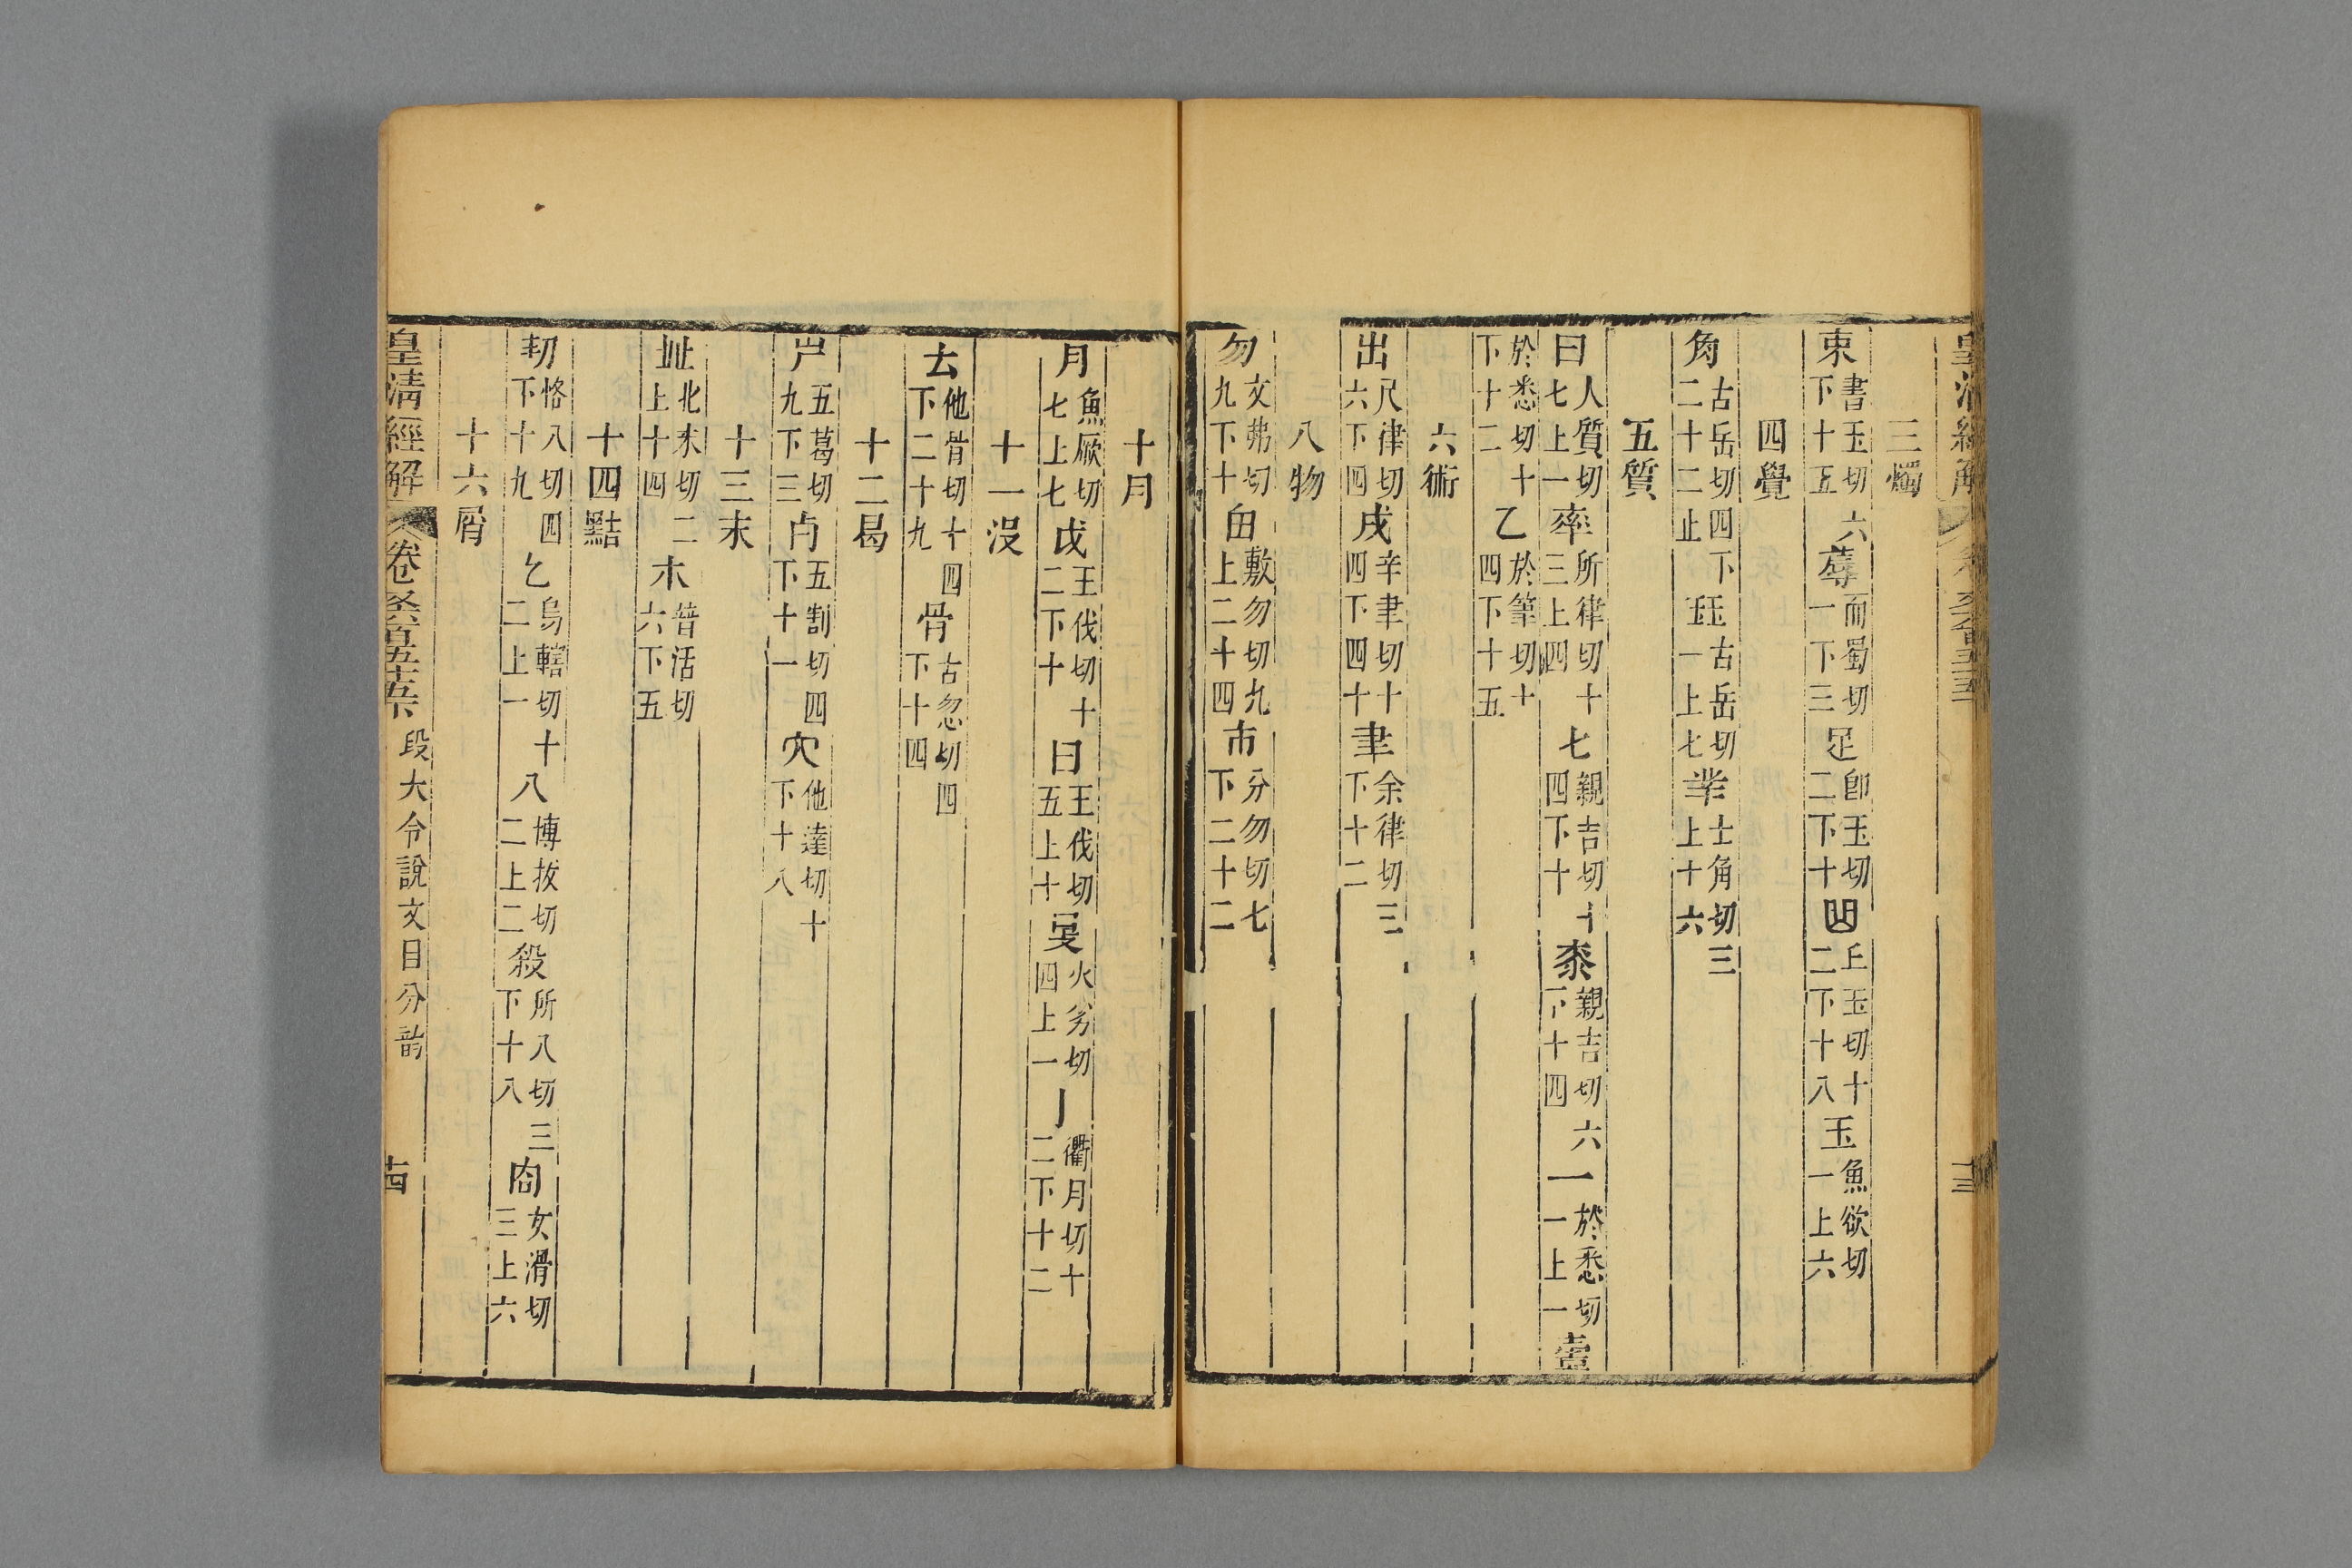 三燭
束書玉切六下十五蓐而蜀切一下三足卽玉切二下十𠚖丘玉切十二下十八玉魚欲切一上六
四覺
角古岳切四下二十二止玨古岳切一上七丵士角切三上十六
五質
日人質切七上一率所律切十三上四七親吉切十四下十桼親吉切六下十四一於悉切一上一壹
於悉切十下十二乙於筆切十四下十五
六術
出尺律切六下四戌辛聿切十四下四十聿余律切三下十二
八物
勿文弗切九下十甶敷勿切九上二十四巿分勿切七下二十二
十月
月魚厥切七上七戉王伐切十二下十曰王伐切五上十𥄎火劣切四上一亅衢月切十二下十二
十一沒
𠫓他骨切十四下二十九骨古忽切四下十四
十二曷
屵五葛切九下三歺五割切四下十一亣他達切十下十八
十三末
癶北末切二上十四𣎵普活切六下五
十四黠
㓞恪八切四下十九乞烏轄切十二上一八博拔切二上二殺所八切三下十八㕯女滑切三上六
十六屑
皇清經解 卷六百五十五下 段大令說文目分韵 十四